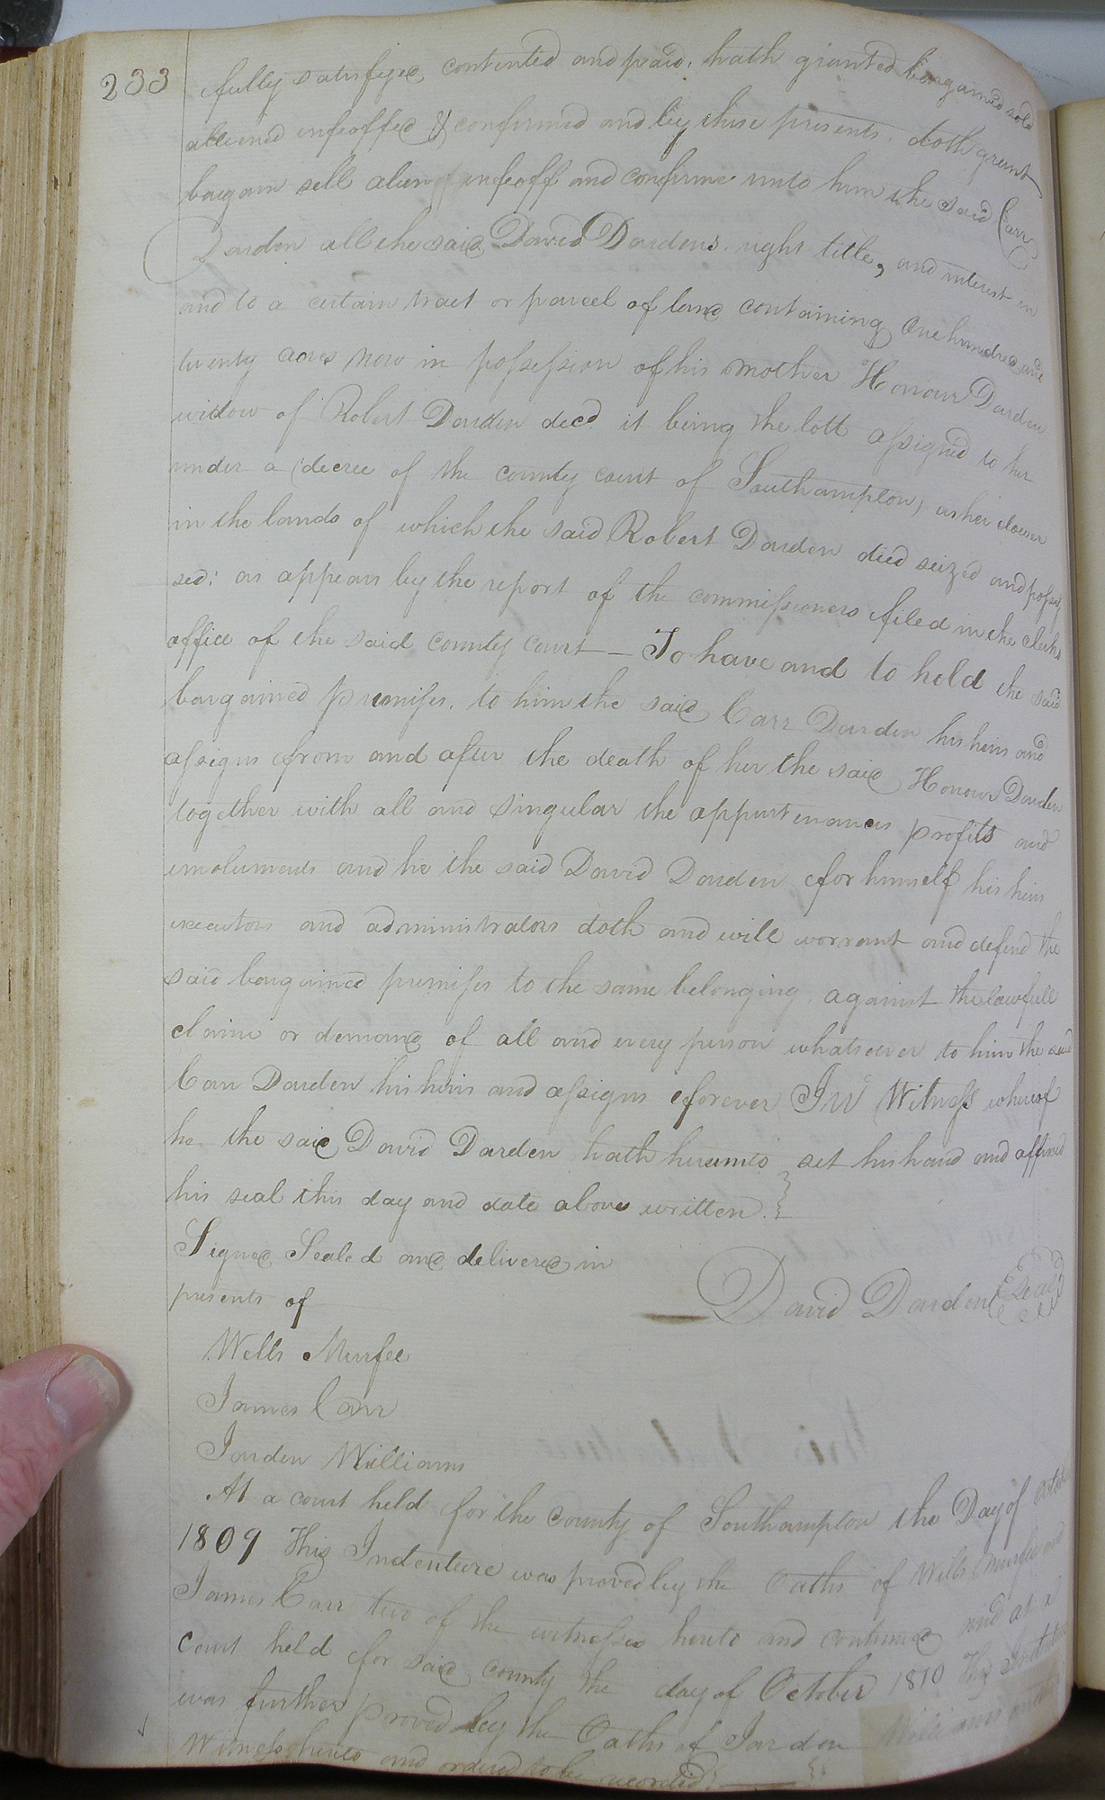 233
fully satisfyed, contented and paid, hath granted bargained sold
aliened infeoffed & confirmed and by these presents, doth grant
bargain sell alien infeoff and confirm unto him the said Carr
Darden all the said David Dardens right title, and interest in
and to a certain tract or parcel of land containing One hundred and
twenty acres now in possession of his mother Honour Darden
widow of Robert Darden decd it being the lott assigned to her
under a decree of the county court of Southampton, as her dower
in the lands of which the said Robert Darden died seized and posses
sed: as appears by the report of the commissioners filed in the clerks
office of the said county court — To have and to hold the said
bargained premises, to him the said Carr Darden his heirs and
assigns from and after the death of her the said Honour Darden
together with all and singular the appurtenances profits and
emoluments and he the said David Darden for himself his heirs
executors and administrators doth and will warrant and defend the
said bargained premises to the same belonging, against the lawfull
claim or demand of all and every person whatsoever to him the said
Carr Darden his heirs and assigns forever In Witness whereof
he the said David Darden hath hereunto set his hand and affixed
his seal this day and date above written.
Signed Sealed and delivered in
presents of
David Darden (Seal)
Wells Murfee
James Carr
Jorden Williams
At a court held for the County of Southampton the Day of
1809 This Indenture was proved by the Oaths of Wells Murfee and
James Carr two of the witnesses hereto and continued and at a
Court held for said County the day of October 1810 This
was further proved by the Oaths of Jorden Williams
Witness hereto and ordered to be recorded